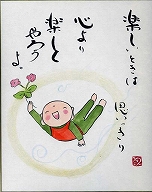 楽しいときは
思いっきり
心より
楽しと
やろう
よ。